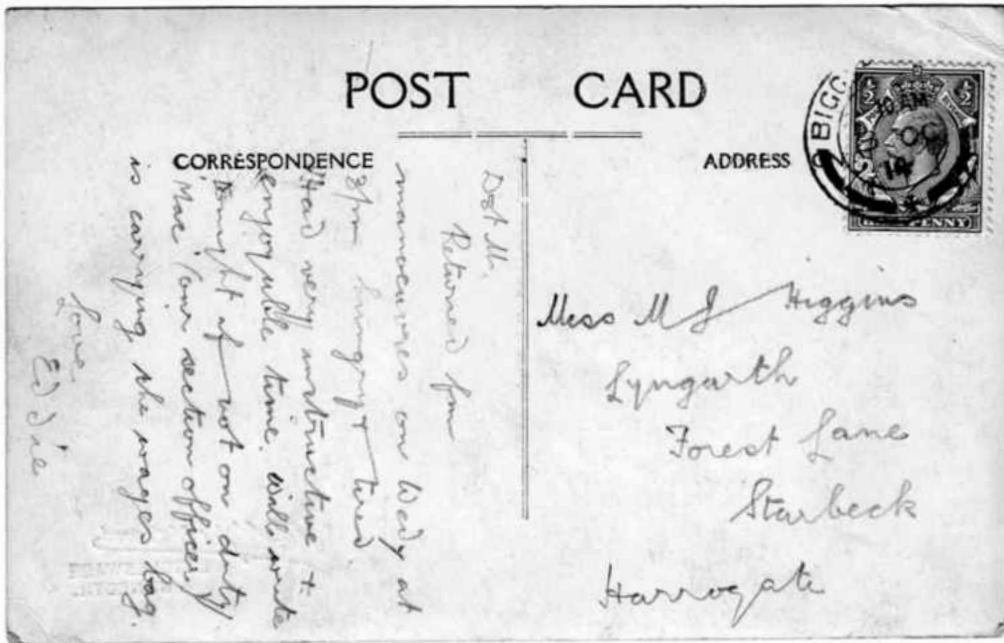 POST CARD
CORRESPONDENCE
ADDRESS
BIGG
10 AM
OC
14
Dst M.
Returned from
manoeuvres on Wedy at
8pm hungry & tired
Had very instructive &
enjoyable time. Will write
tonight if not on duty.
Mac (our section officer)
is carrying the wages bag.
Love
Eddie
Miss M J Higgins
Lyngarth
Forest Lane
Starbeck
Harrogate